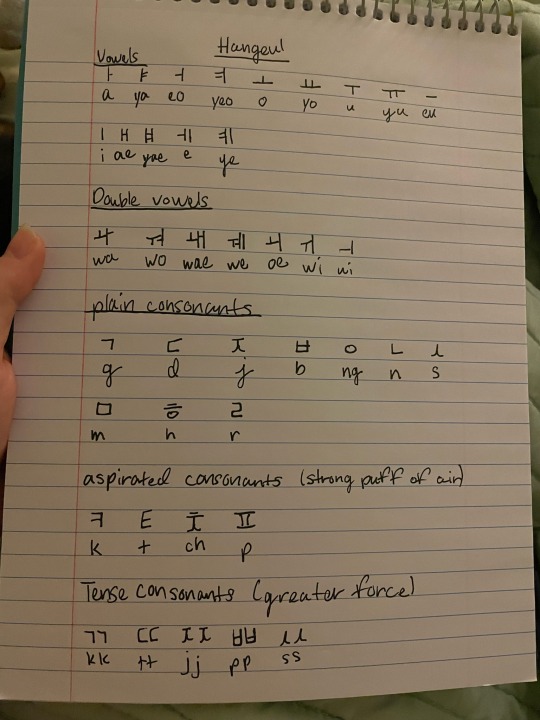 Hangeul
Vowels
ㅏ ㅑ ㅓ ㅕ ㅗ ㅛ ㅜ ㅠ ㅡ
a ya eo yeo o yo u yu eu
ㅣ ㅐ ㅒ ㅔ ㅖ
i ae yae e ye
Double vowels
ㅘ ㅝ ㅙ ㅞ ㅚ ㅟ ㅢ
wa wo wae we oe wi ui
plain consonants
ㄱ ㄷ ㅈ ㅂ ㅇ ㄴ ㅅ
g d j b ng n s
ㅁ ㅎ ㄹ
m h r
aspirated consonants (strong puff of air)
ㅋ ㅌ ㅊ ㅍ
k t ch p
Tense consonants (greater force)
ㄲ ㄸ ㅉ ㅃ ㅆ
kk tt jj pp ss